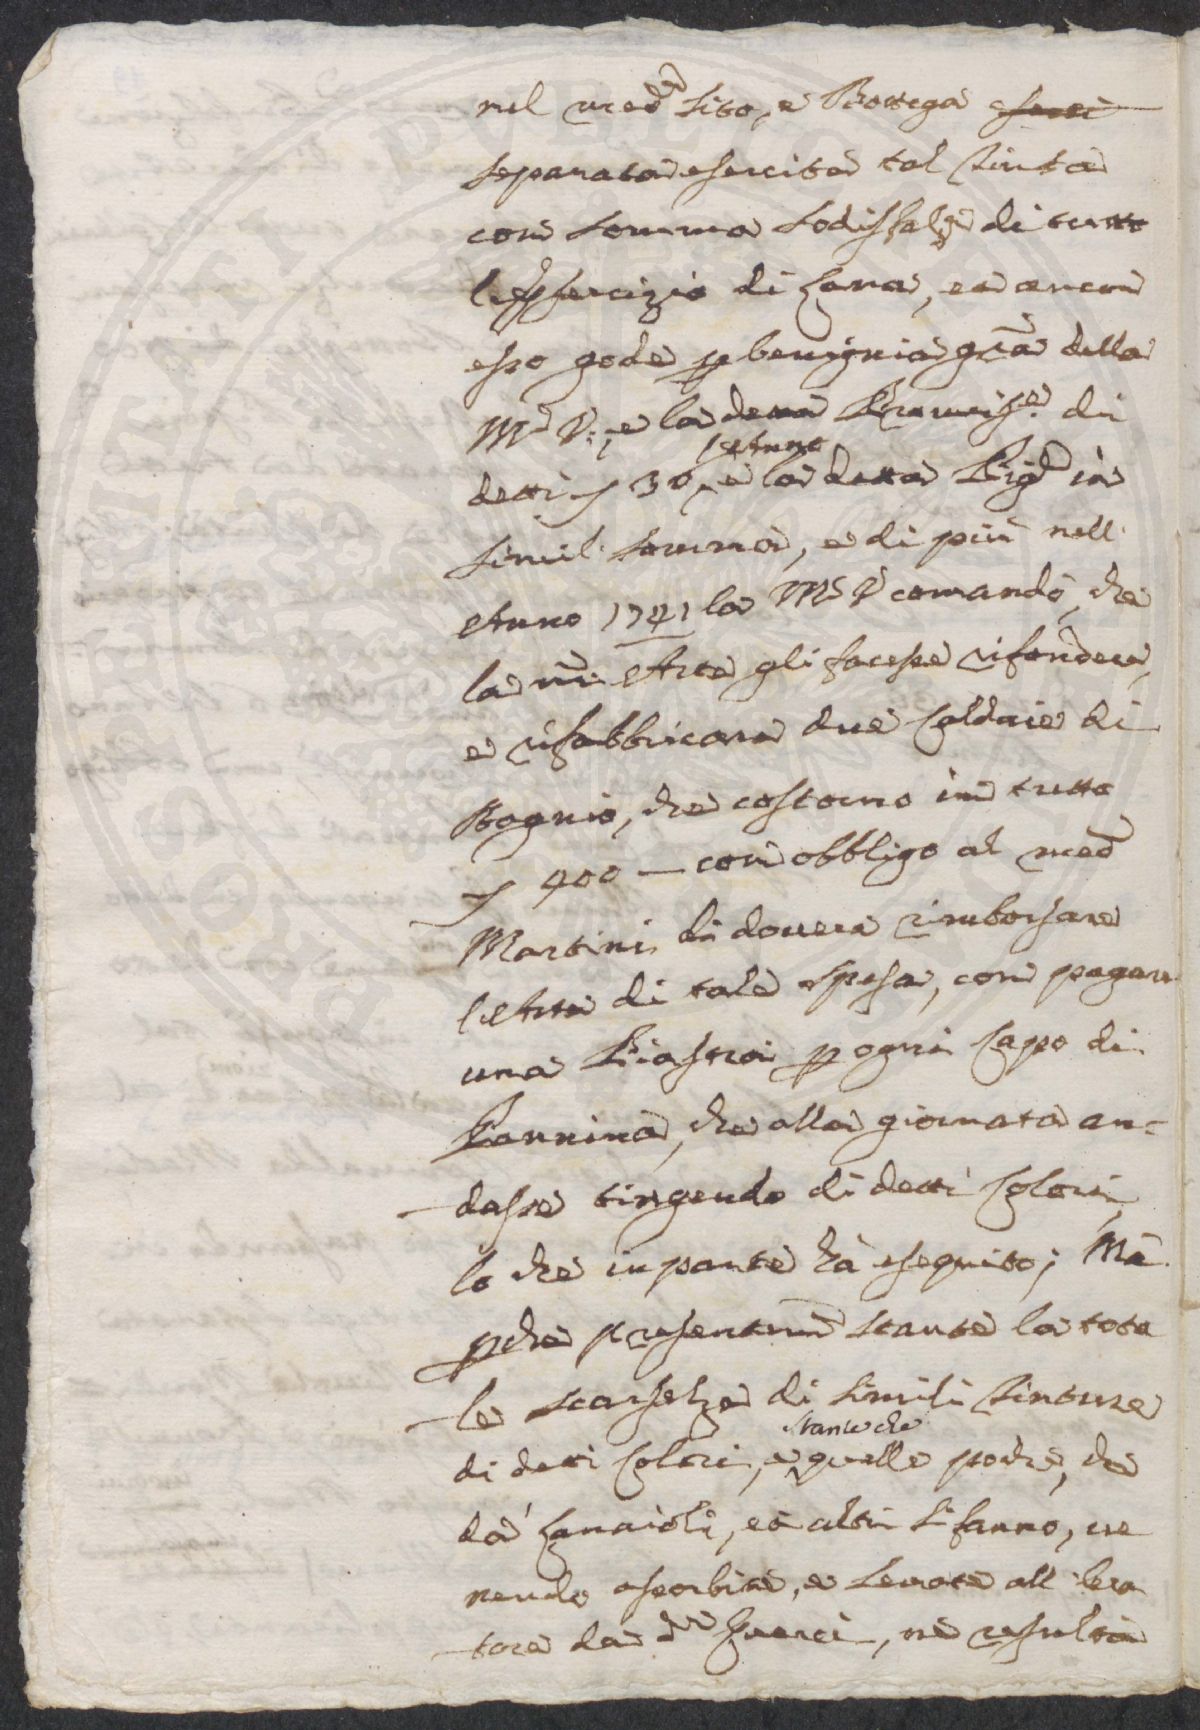 nel med.º sito, e Bottega
separata esercita tal Tinta
con somma sodisfaz.e di tutto
l'Esercizio di Lana, ed ancor
esso gode p benignia gr̃a della
M.a V.a, e la detta Provvis.e di
detti 30, e la detta Pig.e in
simil somma, e di più nell'
Anno 1741 la M.a V.a comandò, che
la nr̃a Arte gli facesse rifondere,
e rifabbricare due Caldaie di
Bagnio, che costorno in tutto
400 — con obbligo al med.º
Martini di dovere rimborsare
l'Arte di tale spesa, con pagare
una Piastra p ogni Capo di
Pannina, che alla giornata an=
dasse tingendo di detti Colori,
lo che in parte hà eseguito; Mà
pche presentem.e stante la tota
le scarsezza di simili Tinture
stante che
di detti Colori, e quelle poche, che
dà Lanaioli, ed altri si fanno, ve
nendo assorbite, e levate all'Ora
tore da d.º Guerci, ne resulta